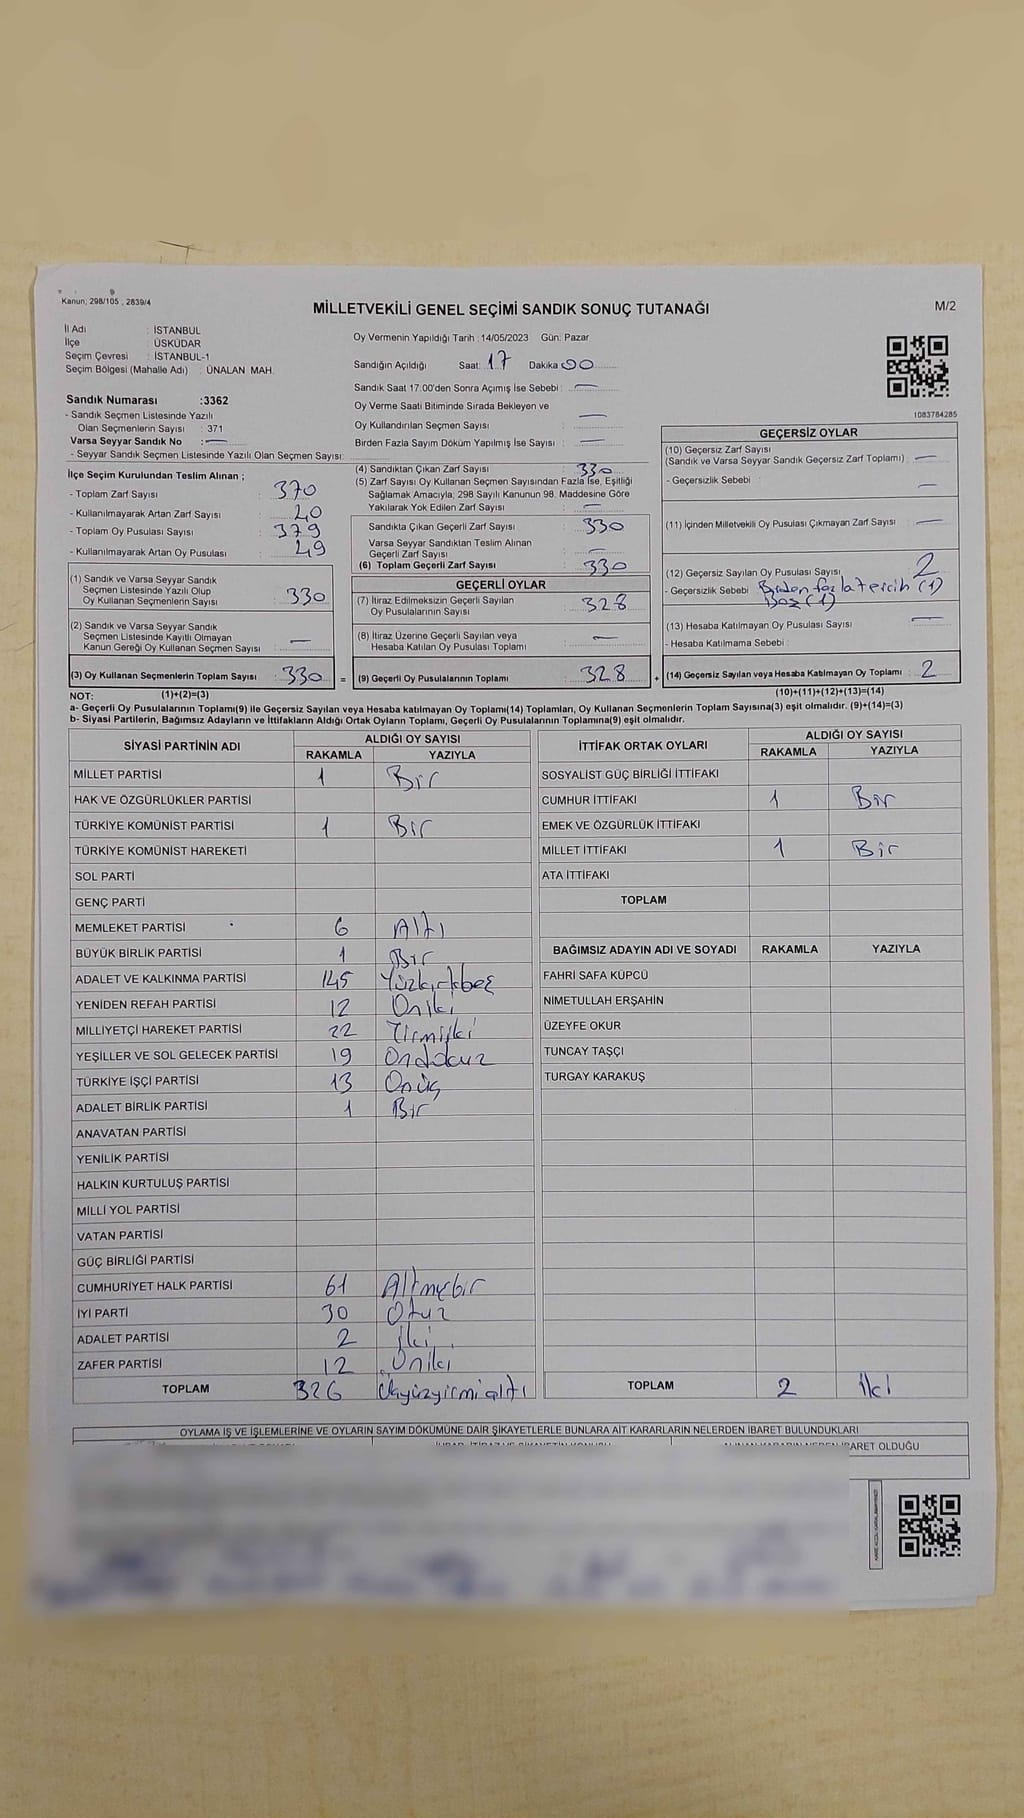 Kanun; 298/105 , 2839/4
MİLLETVEKİLİ GENEL SEÇİMİ SANDIK SONUÇ TUTANAĞI
M/2
İl Adı : İSTANBUL
İlçe : ÜSKÜDAR
Seçim Çevresi : İSTANBUL-1
Seçim Bölgesi (Mahalle Adı) : ÜNALAN MAH.
Sandık Numarası :3362
- Sandık Seçmen Listesinde Yazılı
Olan Seçmenlerin Sayısı : 371
Varsa Seyyar Sandık No : —
- Seyyar Sandık Seçmen Listesinde Yazılı Olan Seçmen Sayısı:
Oy Vermenin Yapıldığı Tarih :14/05/2023 Gün: Pazar
Sandığın Açıldığı Saat: 17 Dakika 00
Sandık Saat 17.00'den Sonra Açımış İse Sebebi : —
Oy Verme Saati Bitiminde Sırada Bekleyen ve
Oy Kullandırılan Seçmen Sayısı : —
Birden Fazla Sayım Döküm Yapılmış İse Sayısı : —
1083784285
İlçe Seçim Kurulundan Teslim Alınan ;
- Toplam Zarf Sayısı : 370
- Kullanılmayarak Artan Zarf Sayısı : 40
- Toplam Oy Pusulası Sayısı : 379
- Kullanılmayarak Artan Oy Pusulası : 49
(1) Sandık ve Varsa Seyyar Sandık
Seçmen Listesinde Yazılı Olup
Oy Kullanan Seçmenlerin Sayısı : 330
(2) Sandık ve Varsa Seyyar Sandık
Seçmen Listesinde Kayıtlı Olmayan
Kanun Gereği Oy Kullanan Seçmen Sayısı : —
(3) Oy Kullanan Seçmenlerin Toplam Sayısı : 330 =
(4) Sandıktan Çıkan Zarf Sayısı : 330
(5) Zarf Sayısı Oy Kullanan Seçmen Sayısından Fazla İse, Eşitliği
Sağlamak Amacıyla; 298 Sayılı Kanunun 98. Maddesine Göre
Yakılarak Yok Edilen Zarf Sayısı : —
Sandıkta Çıkan Geçerli Zarf Sayısı : 330
Varsa Seyyar Sandıktan Teslim Alınan
Geçerli Zarf Sayısı : —
(6) Toplam Geçerli Zarf Sayısı : 330
GEÇERLİ OYLAR
(7) İtiraz Edilmeksizin Geçerli Sayılan
Oy Pusulalarının Sayısı : 328
(8) İtiraz Üzerine Geçerli Sayılan veya
Hesaba Katılan Oy Pusulası Toplamı : —
(9) Geçerli Oy Pusulalarının Toplamı : 328 +
GEÇERSİZ OYLAR
(10) Geçersiz Zarf Sayısı
(Sandık ve Varsa Seyyar Sandık Geçersiz Zarf Toplamı) : —
- Geçersizlik Sebebi : —
(11) İçinden Milletvekili Oy Pusulası Çıkmayan Zarf Sayısı : —
(12) Geçersiz Sayılan Oy Pusulası Sayısı : 2
- Geçersizlik Sebebi Birden fazla tercih (1)
Boş (1)
(13) Hesaba Katılmayan Oy Pusulası Sayısı : —
- Hesaba Katılmama Sebebi :
(14) Geçersiz Sayılan veya Hesaba Katılmayan Oy Toplamı : 2
NOT: (1)+(2)=(3) (10)+(11)+(12)+(13)=(14)
a- Geçerli Oy Pusulalarının Toplamı(9) ile Geçersiz Sayılan veya Hesaba katılmayan Oy Toplamı(14) Toplamları, Oy Kullanan Seçmenlerin Toplam Sayısına(3) eşit olmalıdır. (9)+(14)=(3)
b- Siyasi Partilerin, Bağımsız Adayların ve İttifakların Aldığı Ortak Oyların Toplamı, Geçerli Oy Pusulalarının Toplamına(9) eşit olmalıdır.
SİYASİ PARTİNİN ADI ALDIĞI OY SAYISI
RAKAMLA YAZIYLA
MİLLET PARTİSİ 1 Bir
HAK VE ÖZGÜRLÜKLER PARTİSİ
TÜRKİYE KOMÜNİST PARTİSİ 1 Bir
TÜRKİYE KOMÜNİST HAREKETİ
SOL PARTİ
GENÇ PARTİ
MEMLEKET PARTİSİ 6 Altı
BÜYÜK BİRLİK PARTİSİ 1 Bir
ADALET VE KALKINMA PARTİSİ 145 Yüzkırkbeş
YENİDEN REFAH PARTİSİ 12 Oniki
MİLLİYETÇİ HAREKET PARTİSİ 22 Yirmiiki
YEŞİLLER VE SOL GELECEK PARTİSİ 19 Ondokuz
TÜRKİYE İŞÇİ PARTİSİ 13 Onüç
ADALET BİRLİK PARTİSİ 1 Bir
ANAVATAN PARTİSİ
YENİLİK PARTİSİ
HALKIN KURTULUŞ PARTİSİ
MİLLİ YOL PARTİSİ
VATAN PARTİSİ
GÜÇ BİRLİĞİ PARTİSİ
CUMHURİYET HALK PARTİSİ 61 Altmışbir
İYİ PARTİ 30 Otuz
ADALET PARTİSİ 2 İki
ZAFER PARTİSİ 12 Oniki
TOPLAM 326 Üçyüzyirmialtı
İTTİFAK ORTAK OYLARI ALDIĞI OY SAYISI
RAKAMLA YAZIYLA
SOSYALİST GÜÇ BİRLİĞİ İTTİFAKI
CUMHUR İTTİFAKI 1 Bir
EMEK VE ÖZGÜRLÜK İTTİFAKI
MİLLET İTTİFAKI 1 Bir
ATA İTTİFAKI
TOPLAM
BAĞIMSIZ ADAYIN ADI VE SOYADI RAKAMLA YAZIYLA
FAHRİ SAFA KÜPCÜ
NİMETULLAH ERŞAHİN
ÜZEYFE OKUR
TUNCAY TAŞÇI
TURGAY KARAKUŞ
TOPLAM 2 İki
OYLAMA İŞ VE İŞLEMLERİNE VE OYLARIN SAYIM DÖKÜMÜNE DAİR ŞİKAYETLERLE BUNLARA AİT KARARLARIN NELERDEN İBARET BULUNDUKLARI
İBARET OLDUĞU